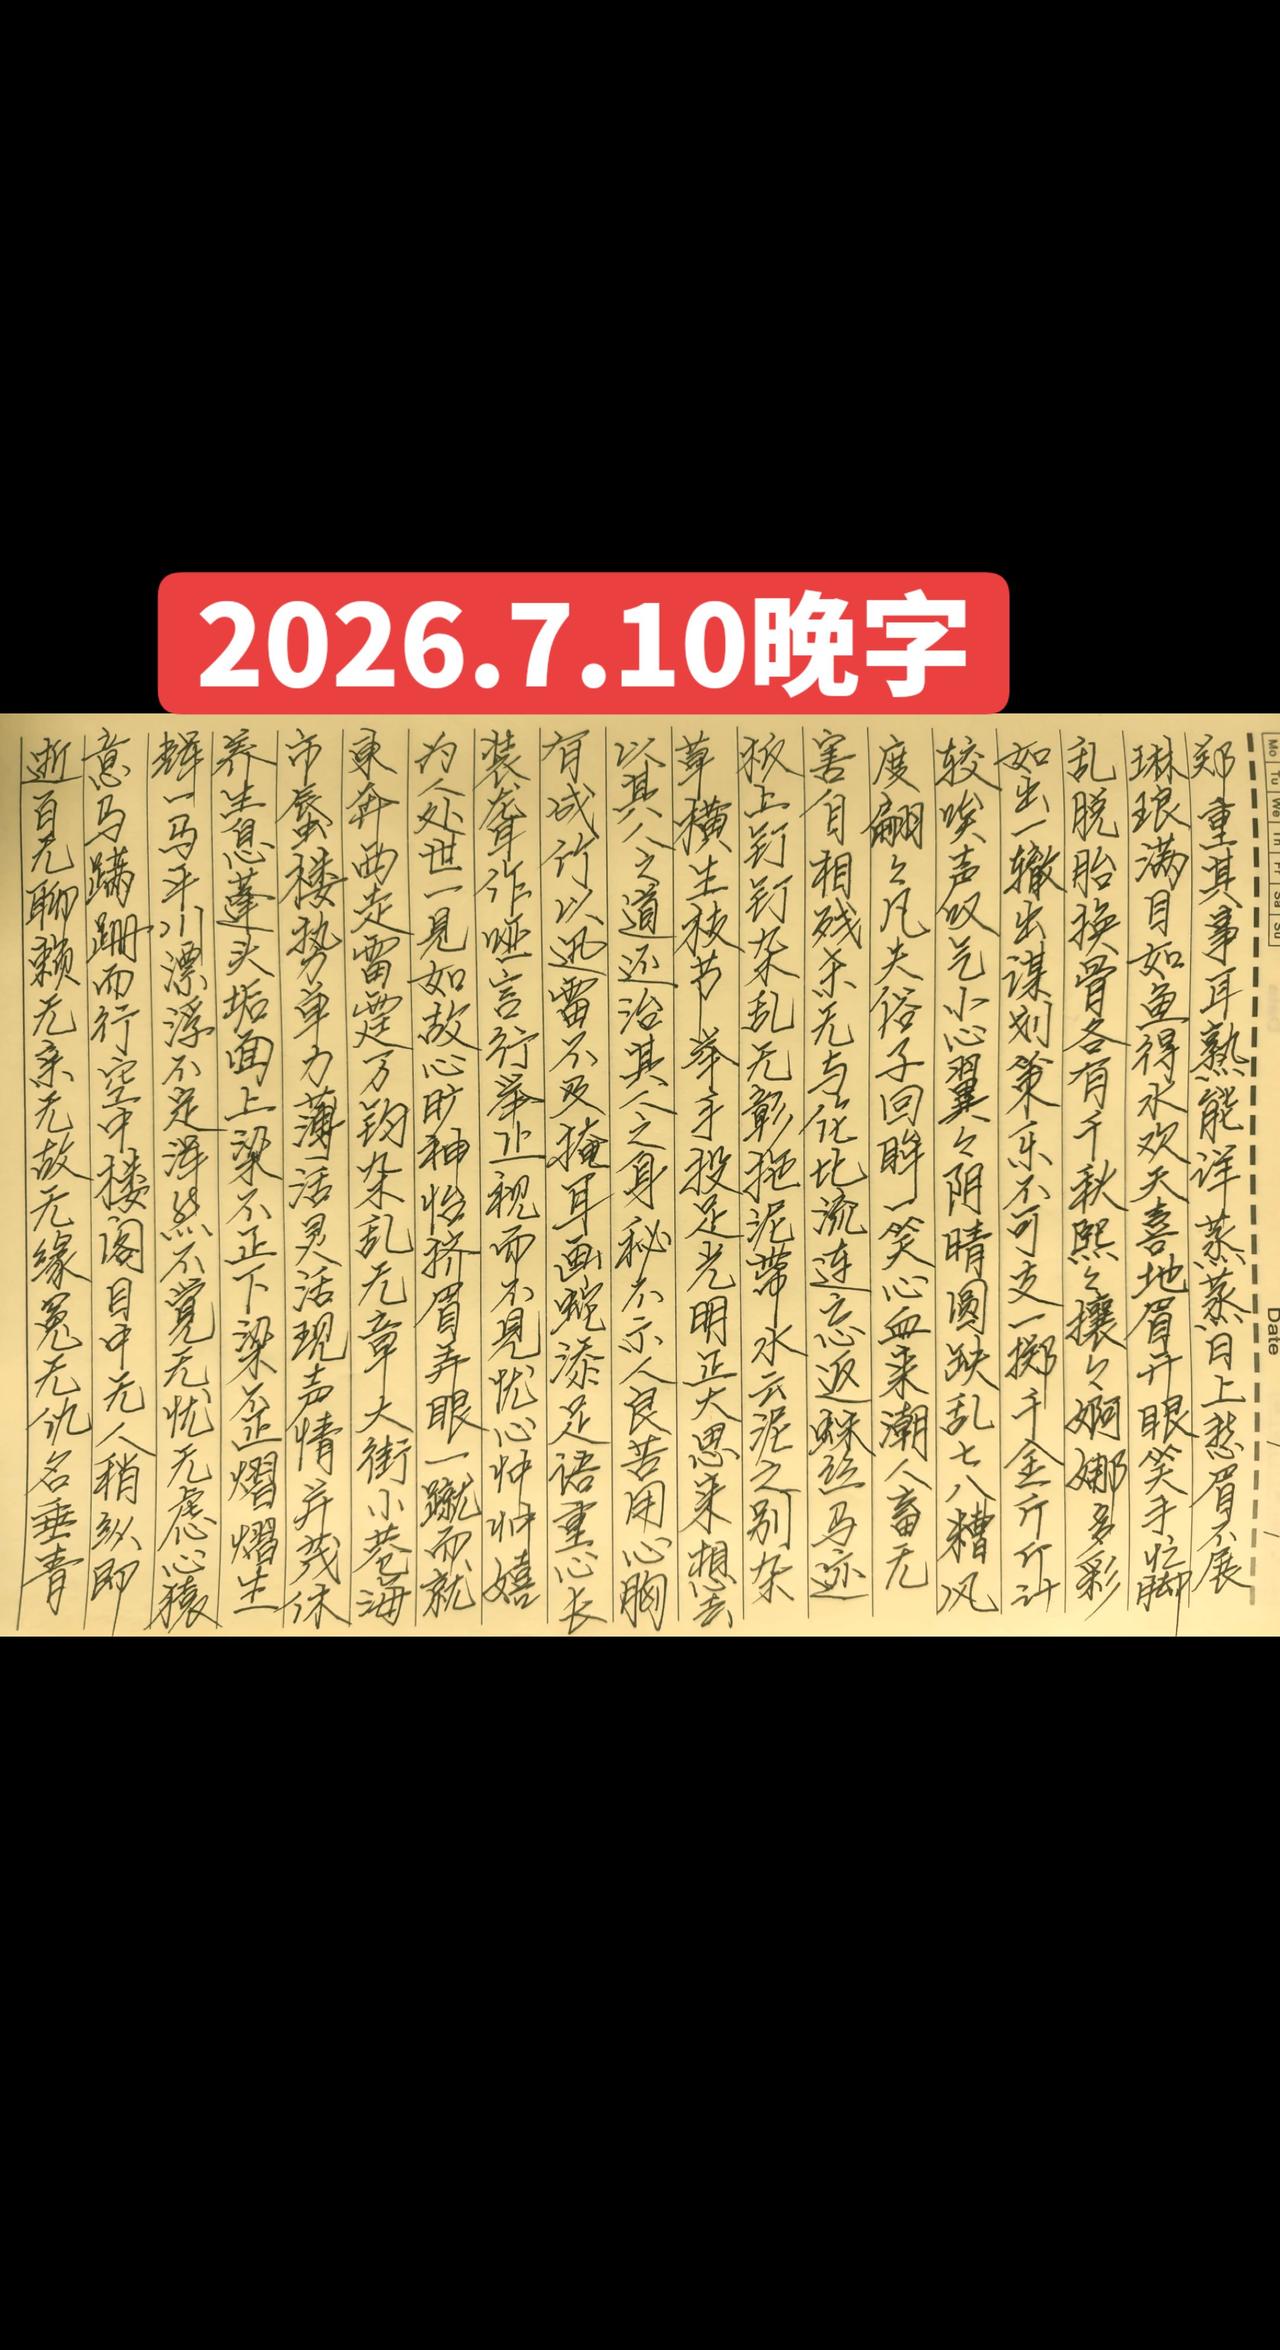 2026.7.10晚字
Mo Tu We Th Fr Sa Su
Date / /
郑重其事耳熟能详蒸蒸日上愁眉不展
琳琅满目如鱼得水欢天喜地眉开眼笑手忙脚
乱脱胎换骨各有千秋熙々攘々婀娜多彩
如出一辙出谋划策乐不可支一掷千金斤斤计
较唉声叹气小心翼々阴晴圆缺乱七八糟风
度翩々凡夫俗子回眸一笑心血来潮人畜无
害自相残杀无与伦比流连忘返蛛丝马迹
板上钉钉杂乱无彰拖泥带水云泥之别杂
草横生枝节举手投足光明正大思来想去
以其人之道还治其人之身秘不示人良苦用心胸
有成竹以迅雷不及掩耳画蛇添足语重心长
装聋作哑言行举止视而不見忧心忡忡嬉
为人处世一見如故心旷神怡挤眉弄眼一蹴而就
東奔西走雷霆万钧杂乱无章大街小巷海
市蜃楼势单力薄活灵活现声情并茂休
养生息蓬头垢面上梁不正下梁歪熠熠生
辉一马平川漂浮不定浑然不觉无忧无虑心猿
意马蹒跚而行空中楼阁目中无人稍纵即
逝百无聊赖无亲无故无缘冤无仇名垂青